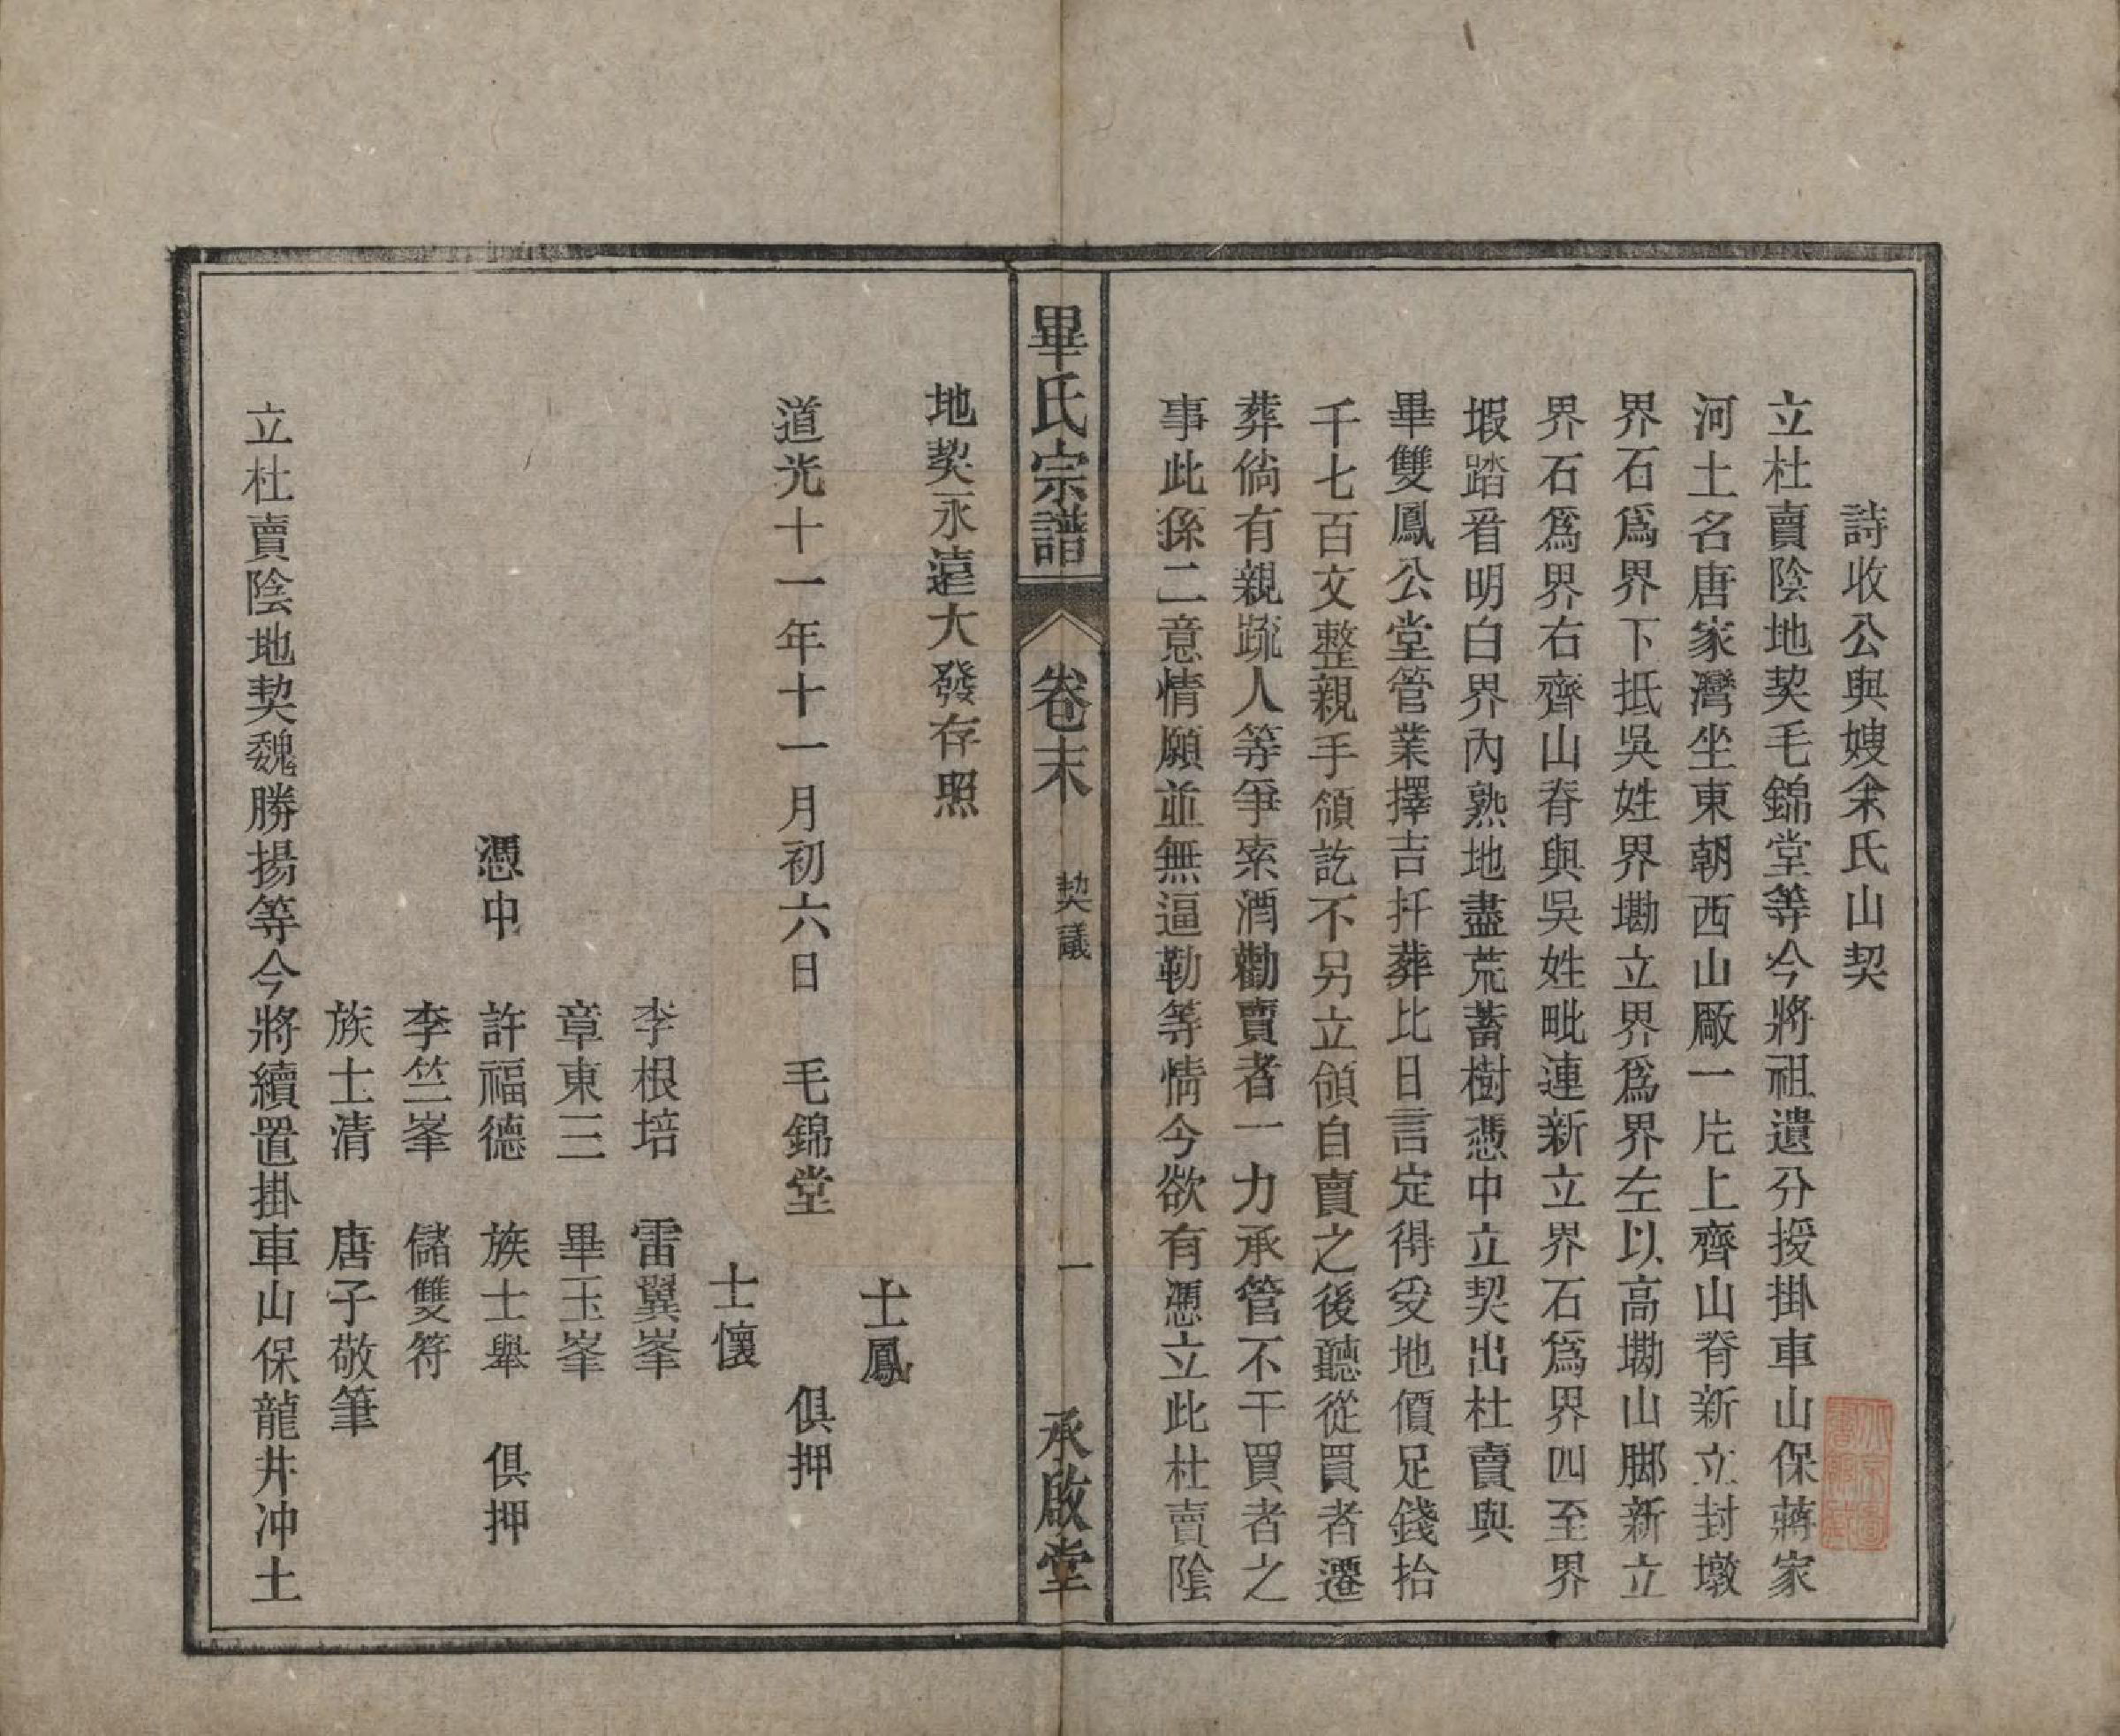 詩收公與嫂余氏山契
立杜賣陰地契毛錦堂等今將祖遺分授掛車山保蔣家
河土名唐家灣坐東朝西山厰一片上齊山脊新立封墩
界石爲界下抵吳姓界墈立界爲界左以高墈山脚新立
界石爲界右齊山脊與吳姓毗連新立界石爲界四至界
塅踏看明白界內熟地盡荒蓄樹憑中立契出杜賣與
畢雙鳳公堂管業擇吉扦葬比日言定得受地價足錢拾
千七百文整親手領訖不另立領自賣之後聽從買者遷
葬倘有親疏人等爭索酒勸賣者一力承管不干買者之
事此係二意情願並無逼勒等情今欲有憑立此杜賣陰
畢氏宗譜 卷末 契議 一 承啟堂
地契永遠大發存照
士鳳
道光十一年十一月初六日 毛錦堂 俱押
士懷
李根培 雷翼峯
章東三 畢玉峯
憑中 許福德 族士舉 俱押
李竺峯 儲雙符
族士清 唐子敬筆
立杜賣陰地契魏勝揚等今將續置掛車山保龍井冲土